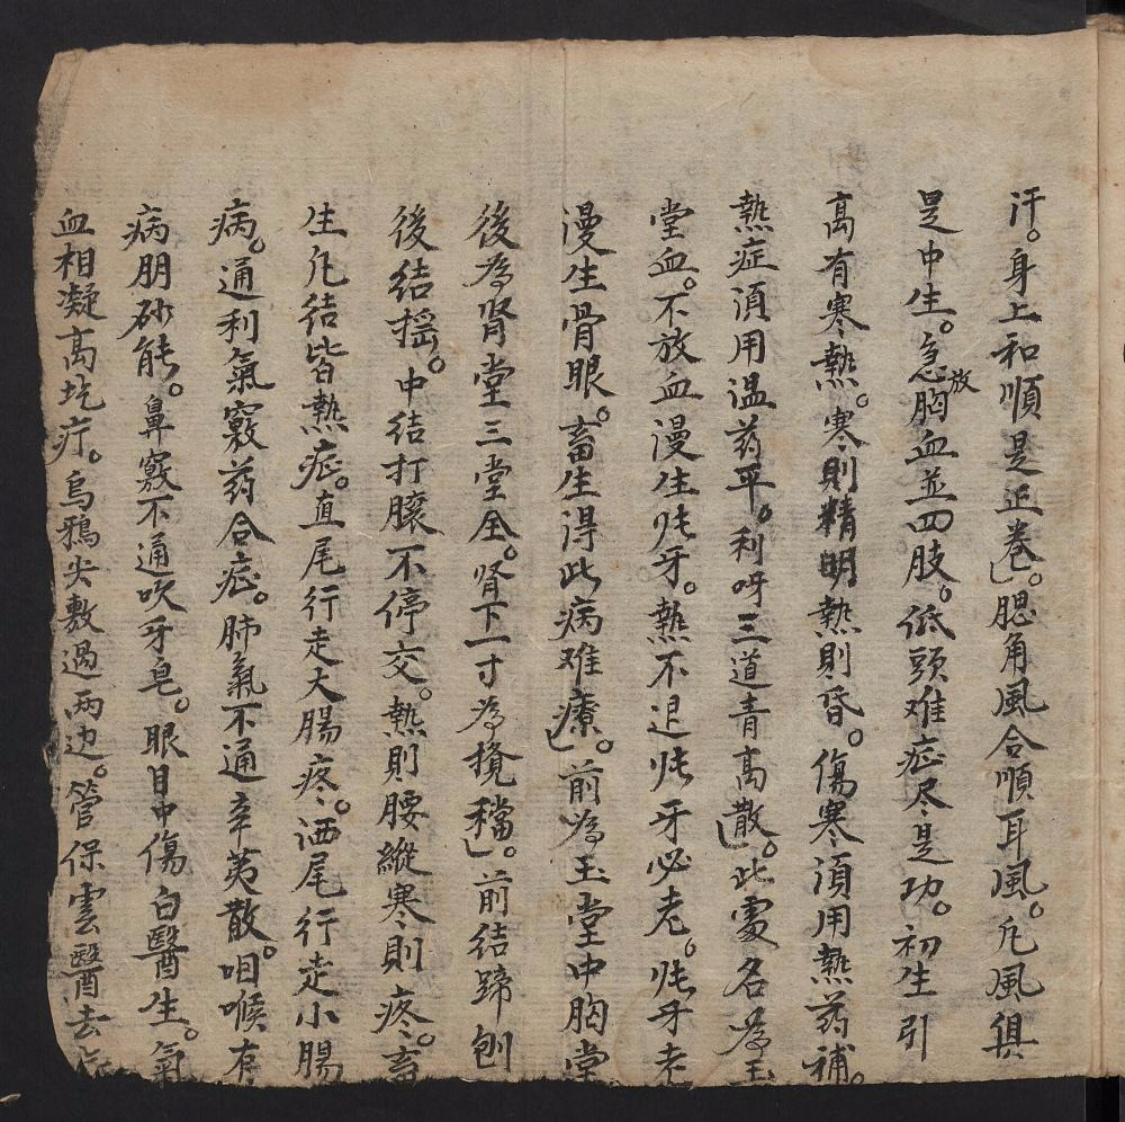 汗。身上和順是正卷。腮角風合順耳風。凢風俱
是中生。急放胸血並四肢。低頭难症尽是功。初生引
高有寒熱。寒則精明熱則昏。傷寒湏用熱药補。
熱症湏用温药平。利呀三道青高散。此處名為玉
堂血。不放血漫生牤牙。熱不退牤牙必老。牤牙老
漫生骨眼。畜生得此病难療。前為玉堂中胸堂
後為肾堂三堂全。肾下一寸為攪稽。前結蹄刨
後結揺。中結打臁不停交。熱則腰縱寒則疼。畜
生凢結皆熱症。直尾行走大腸疼。洒尾行走小腸
病。通利氣竅药合症。肺氣不通辛荑散。咽喉有
病朋砂能。鼻竅不通吹牙皂。眼目中傷白醫生。氣
血相凝高圪疔。烏鴉尖敷過两边。管保雲醫去